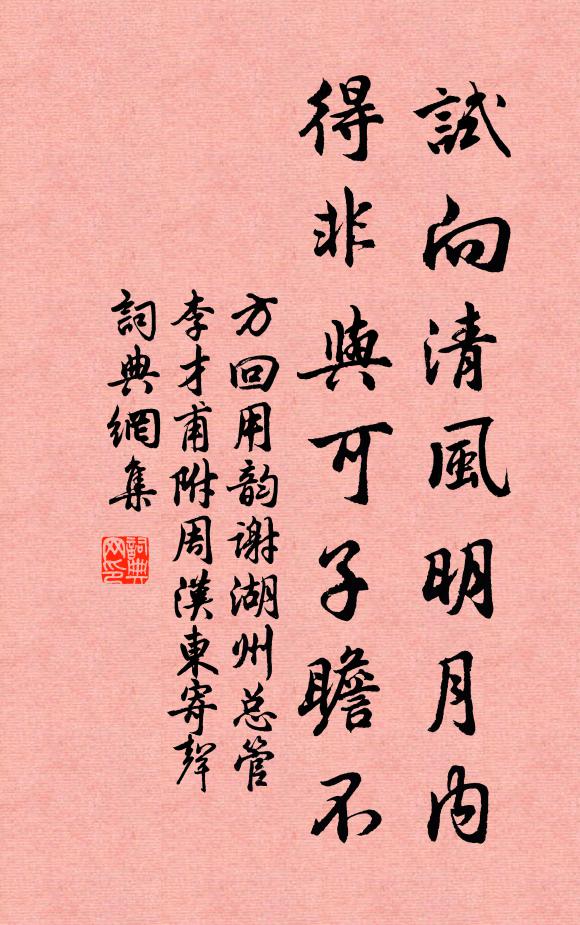 試向清風明月内
得非與可子瞻不
方回用韵谢湖州总管
李才甫附周漢東寄聲
詞典網集
詞典网印